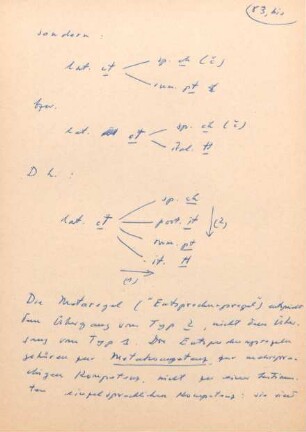 (83, bis
sondern:
lat. ct
sp. ch (č)
rum. pt
bzw.
lat. ct
sp. ch (č)
ital. tt
D.h.:
lat. ct
sp. ch
port. it
rum. pt
it. tt
(2)
(1)
Die Metaregel ("Entsprechungsregel") entspricht
dem Übergang vom Typ 2, nicht dem Über-
gang vom Typ 1. Die Entsprechungsregeln
gehören zur Metakompetenz, zur mehrspra-
chigen Kompetenz, nicht zu einer bestimm-
ten einzelsprachlichen Kompetenz: sie sind